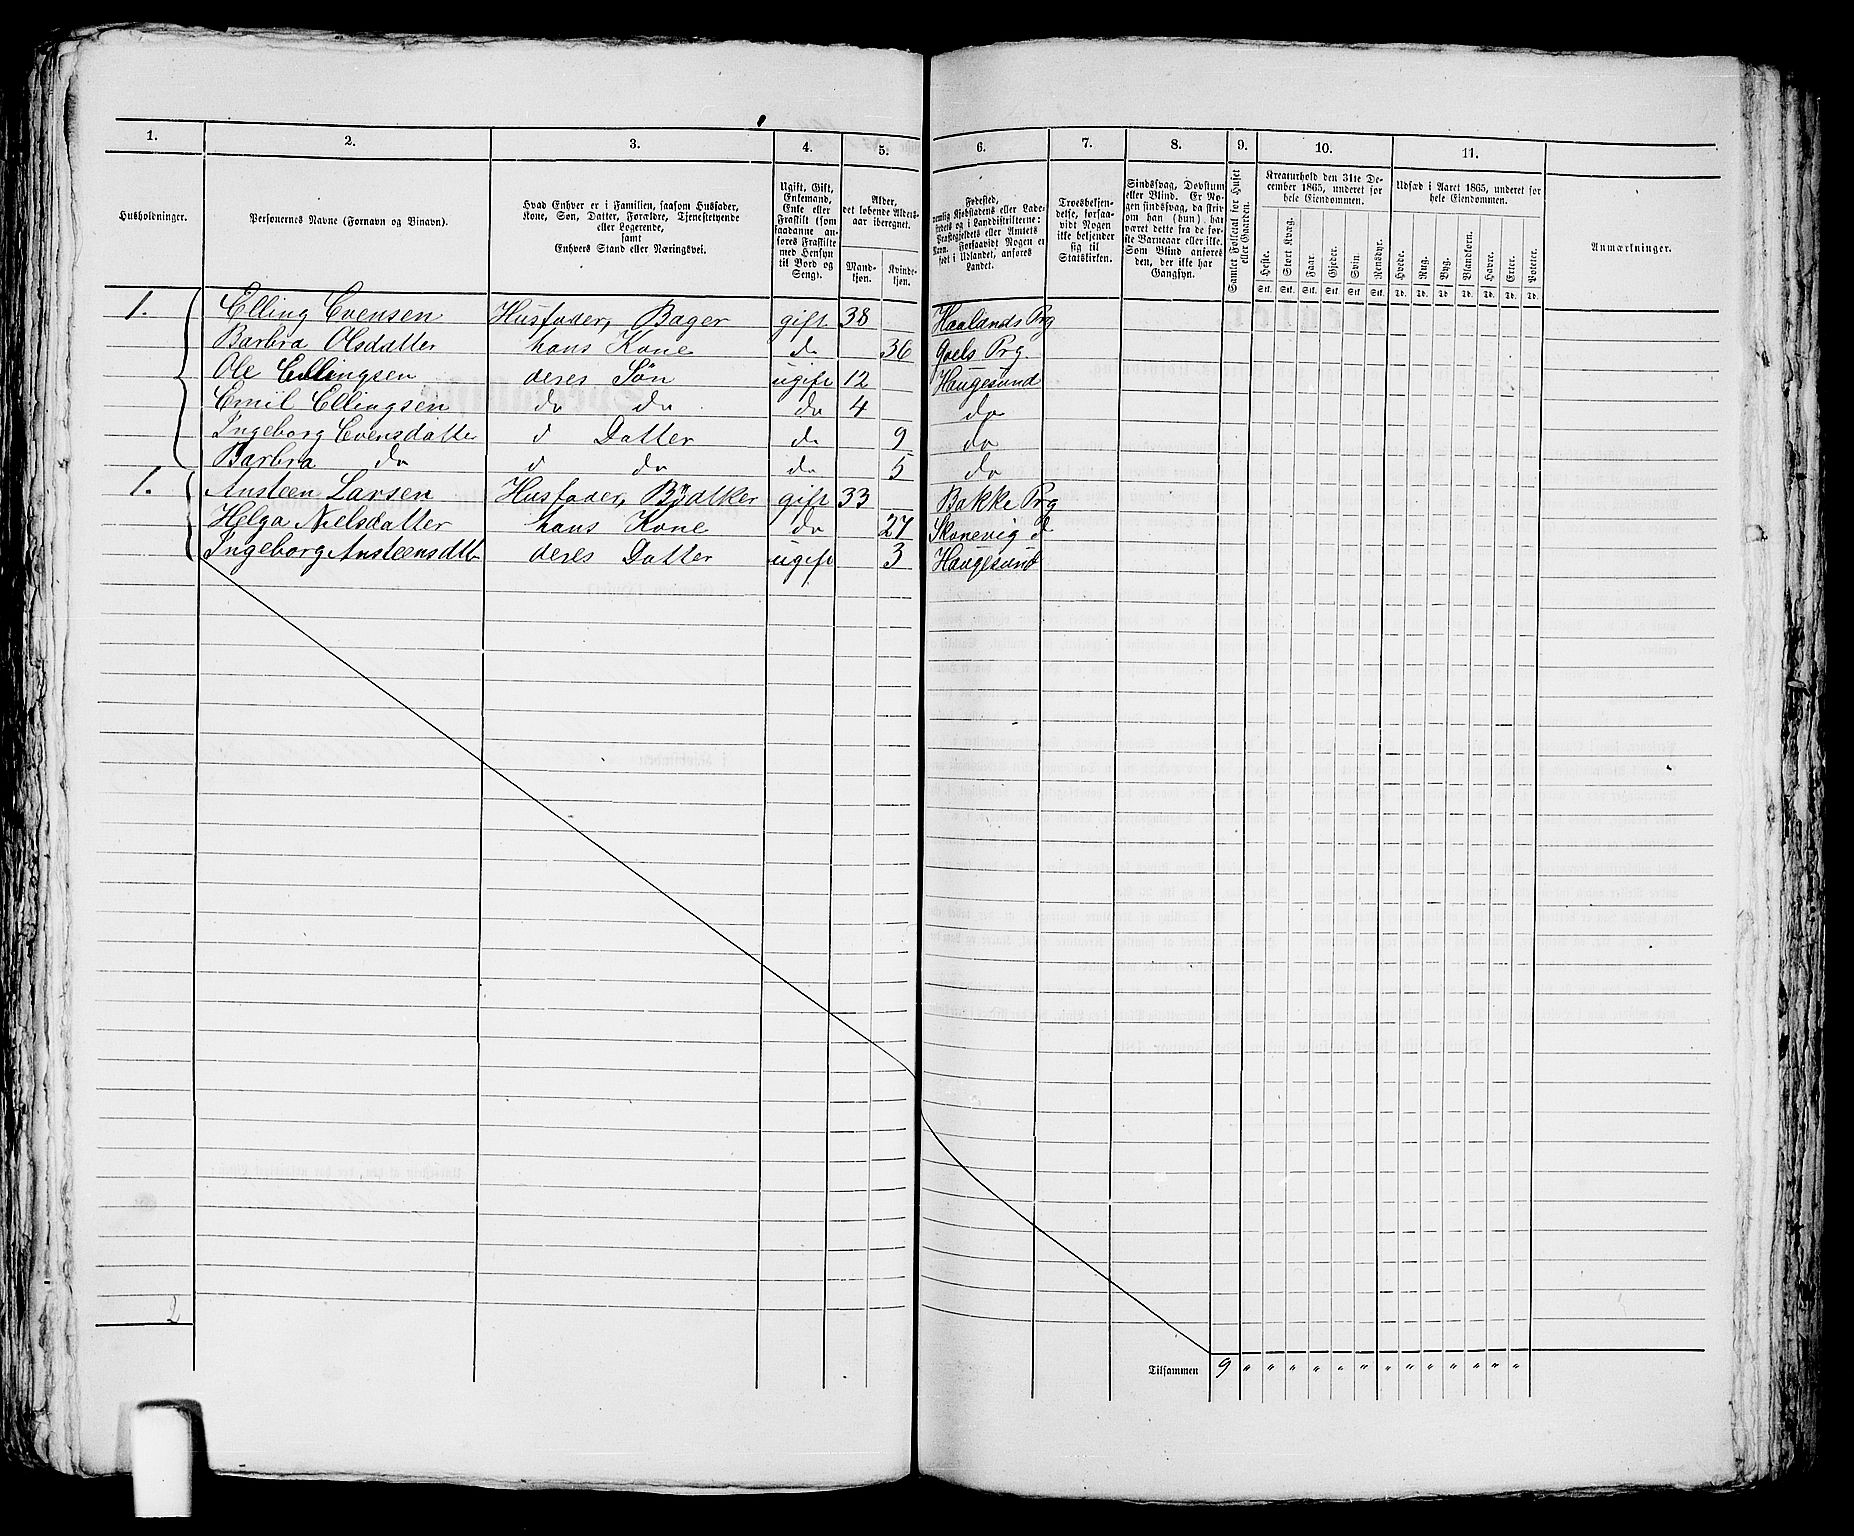 1. 2. 3. 4. 5. 6. 7. 8. 9. 10. 11.
Husholdninger.
Personernes Navne (Fornavn og Binavn).
Hvad Enhver er i Familien, saasom Husfader,
Kone, Søn, Datter, Forældre, Tjenestetyende
eller Logerende,
samt
Enhvers Stand eller Næringsvei.
Ugift, Gift,
Enkemand,
Enke eller
Fraskilt (som
saadanne an-
føres Fraskilte
med Hensyn
til Bord og
Seng).
Alder,
det løbende Alders-
aar iberegnet.
Mand-
kjøn.
Kvinde-
kjøn.
Fødested,
nemlig Kjøbstadens eller Lade-
stedets og i Landdistrikterne:
Præstegjeldets eller Amtets
Navn. Forsaavidt Nogen er
født i Udlandet, anføres
Landet.
Troesbekjen-
delse, forsaa-
vidt Nogen
ikke bekjender
sig til
Statskirken.
Sindssvag, Døvstum
eller Blind. Er No-
gen sindssvag, da skriv
om han (hun) har
været dette fra de før-
ste Barneaar eller ikke.
Som Blind anføres
den, der ikke har
Gangsyn.
Samlet Folketal for Huset
eller Gaarden.
Kreaturhold den 31te De-
cember 1865, underet for
hele Eiendommen.
Heste. Stort Kvæg. Faar. Gjeder. Svin. Rensdyr.
Stk. Stk. Stk. Stk. Stk. Stk.
Udsæd i Aaret 1865, underet for
hele Eiendommen.
Hvede. Rug. Byg. Blandkorn. Havre. Erter. Poteter.
Td. Td. Td. Td. Td. Td. Td.
Anmærkninger.
1. Elling Evensen Husfader, Bager gift 38 Haalands Prg
Barbra Olsdatter hans Kone do 36 Prg.
Ole Ellingsen deres Søn ugift 12 Haugesund
Emil Ellingsen do do do 4 do
Ingeborg Evensdatter d Datter do 9 do
Barbra do d do do 5 do
1. Ansteen Larsen Husfader, Bødtker gift 33 Bakke Prg
Helga Nielsdatter hans Kone do 27 Skonevig d
Ingeborg Ansteensdtt deres Datter ugift 3 Haugesund
2
Tilsammen 9 " " " " " " " " " " " "